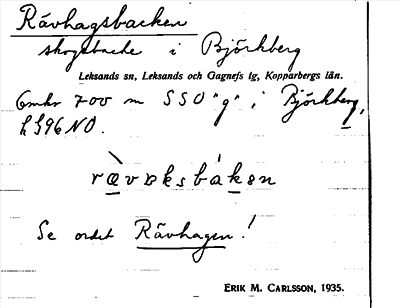 Rävhagsbacken
skogsbacke i Björkberg
Leksands sn, Leksands och Gagnefs tg, Kopparbergs län.
Omkr 700 m SSO "g" i Björkberg,
h596NO.
rævɐksbakɐn
Se ordet Rävhagen!
ERIK M. CARLSSON, 1935.